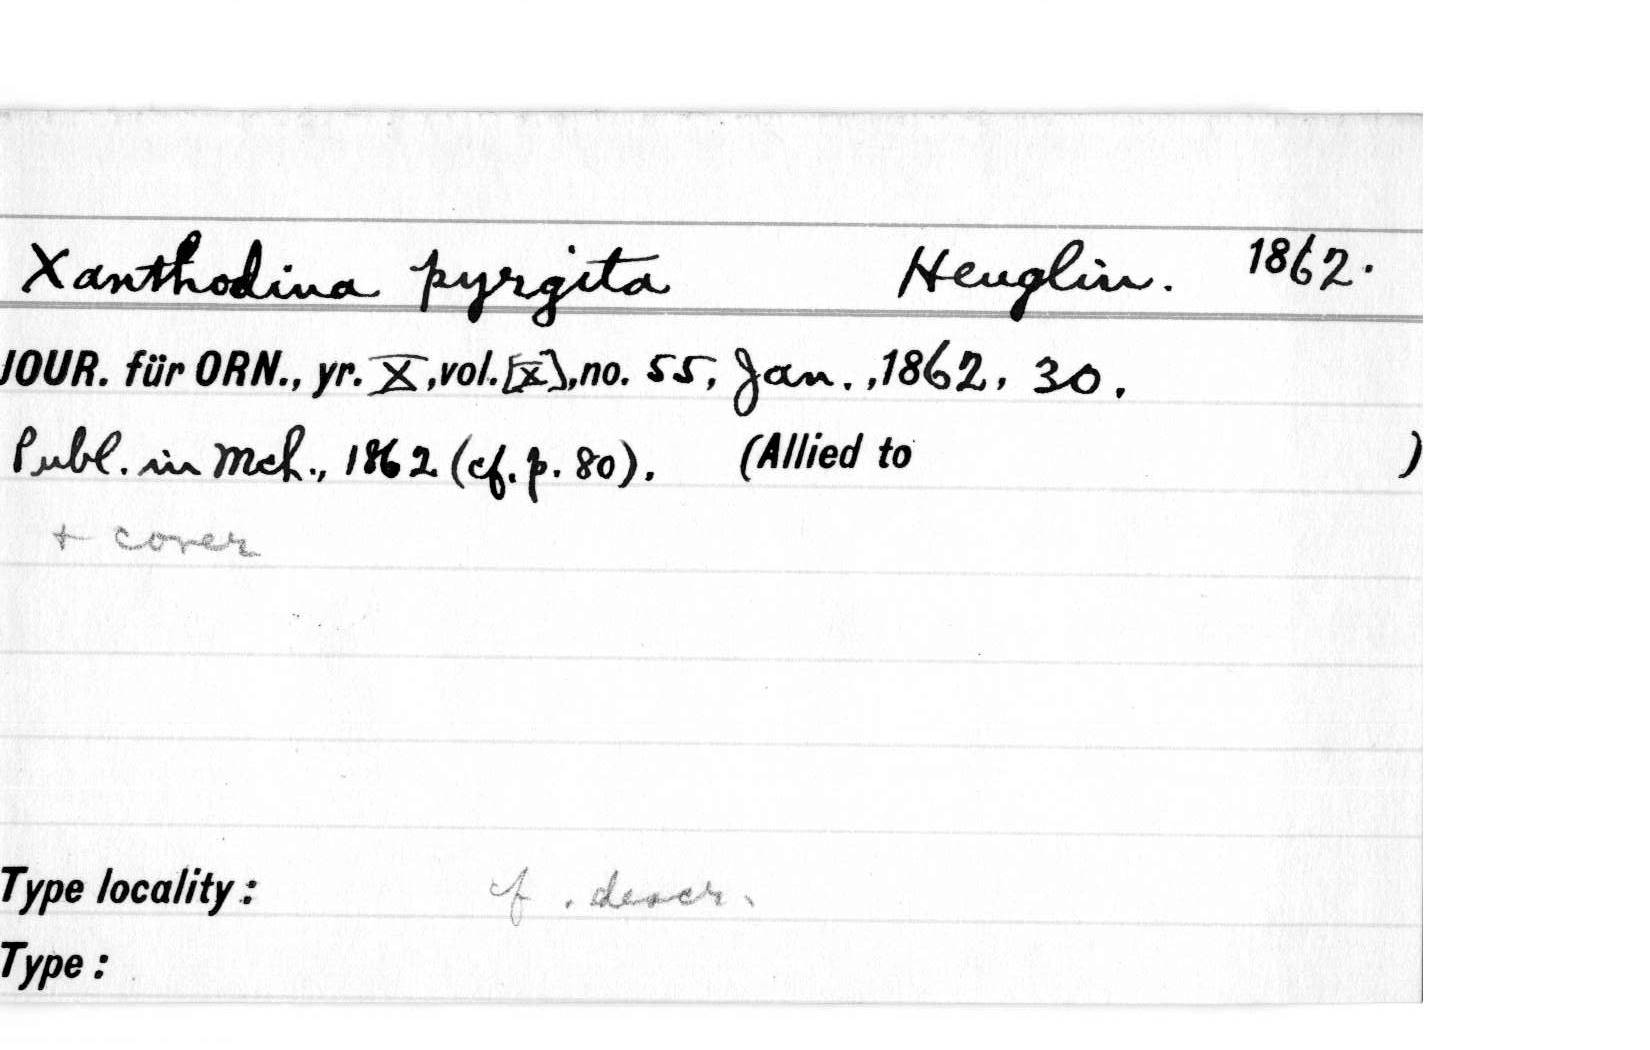 Xanthodina pyrgita Heuglin. 1862.
JOUR. für ORN., yr. X, vol. [X], no. 55, Jan., 1862, 30.
Publ. in Mch., 1862 (cf. p. 80). (Allied to )
+ cover
Type locality: cf. descr.
Type: